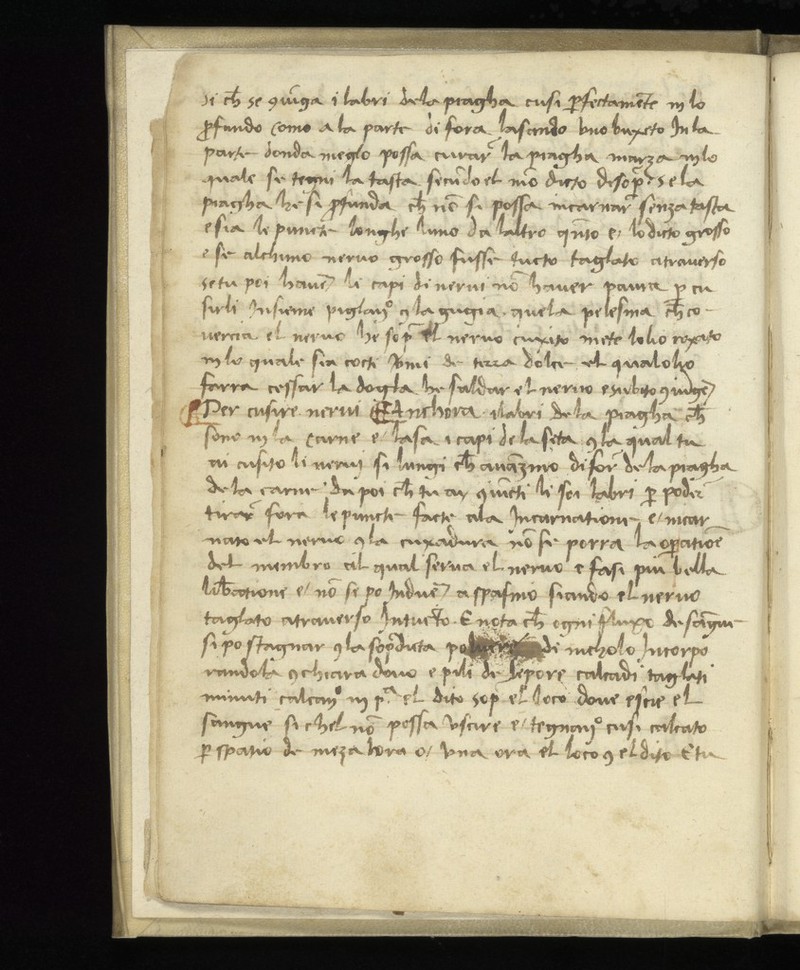 si ch̄ se 9iūga i labri dela piagha cusi ꝑfectamēte in lo
ꝓfundo como a la parte di fora lasando uno buxeto In la
parte donda meglo possa curar̄ la piagha marza in lo
quale se tegni la tasta secūdo el mō dicto disop̄ Se la
piagha he si ꝓfunda ch̄ nō si possa incarnar̄ senza tasta
e sia le puncte longhe luno da laltro q̄nto e/ lo dicto grosso
e se alchuno nervo grosso fusse tucto taglato atraverso
se tu poi haver̄ li capi di nervi nō haver paura ꝑ cu
sirli Insieme piglan͞o 9 la gugia quela pelesina ch̄ co-
vercia el nervo he sop̄ el nervo cuxito mete lolio roxato
in lo quale sia cocti v̄mi de terra dolce el qual olio
farra cessar la dogla he saldar el nervo e subito 9iūge
Per cusire nervi Anchora i labri de la piagha ch̄
sono in la carne e/ lasa i capi de la seta 9 la qual tu
ai cusito li nervi si lungi ch̄ avāzino di for̄ de la piagha
de la carne da poi ch̄ tu ay 9iūcti li soi labri ꝑ poder̄
tirar̄ fora le puncte facte ala Incarnatione e/ incar
nato el nervo 9 la cuxadura nō se porra la oꝑatiōe
del membro al qual serva el nervo e fasi piu bella
libātione e/ nō se po Induer̄ a spasmo siando el nervo
taglato atraverso Intucto E nota ch̄ ogni fluxo de sāgue
si po stagnar 9 la sop̄dicta di nicholo Incorpo
randola 9 chiara dovo e pili de lepore calcadi taglati
minuti calcan͞o in p̄ª el dito sop̄ el loco dove escie el
sangue si chel nō possa uscire e/ tegnan͞o cusi calcato
ꝑ spatio de meza hora o/ una ora el loco 9 el dito E tu